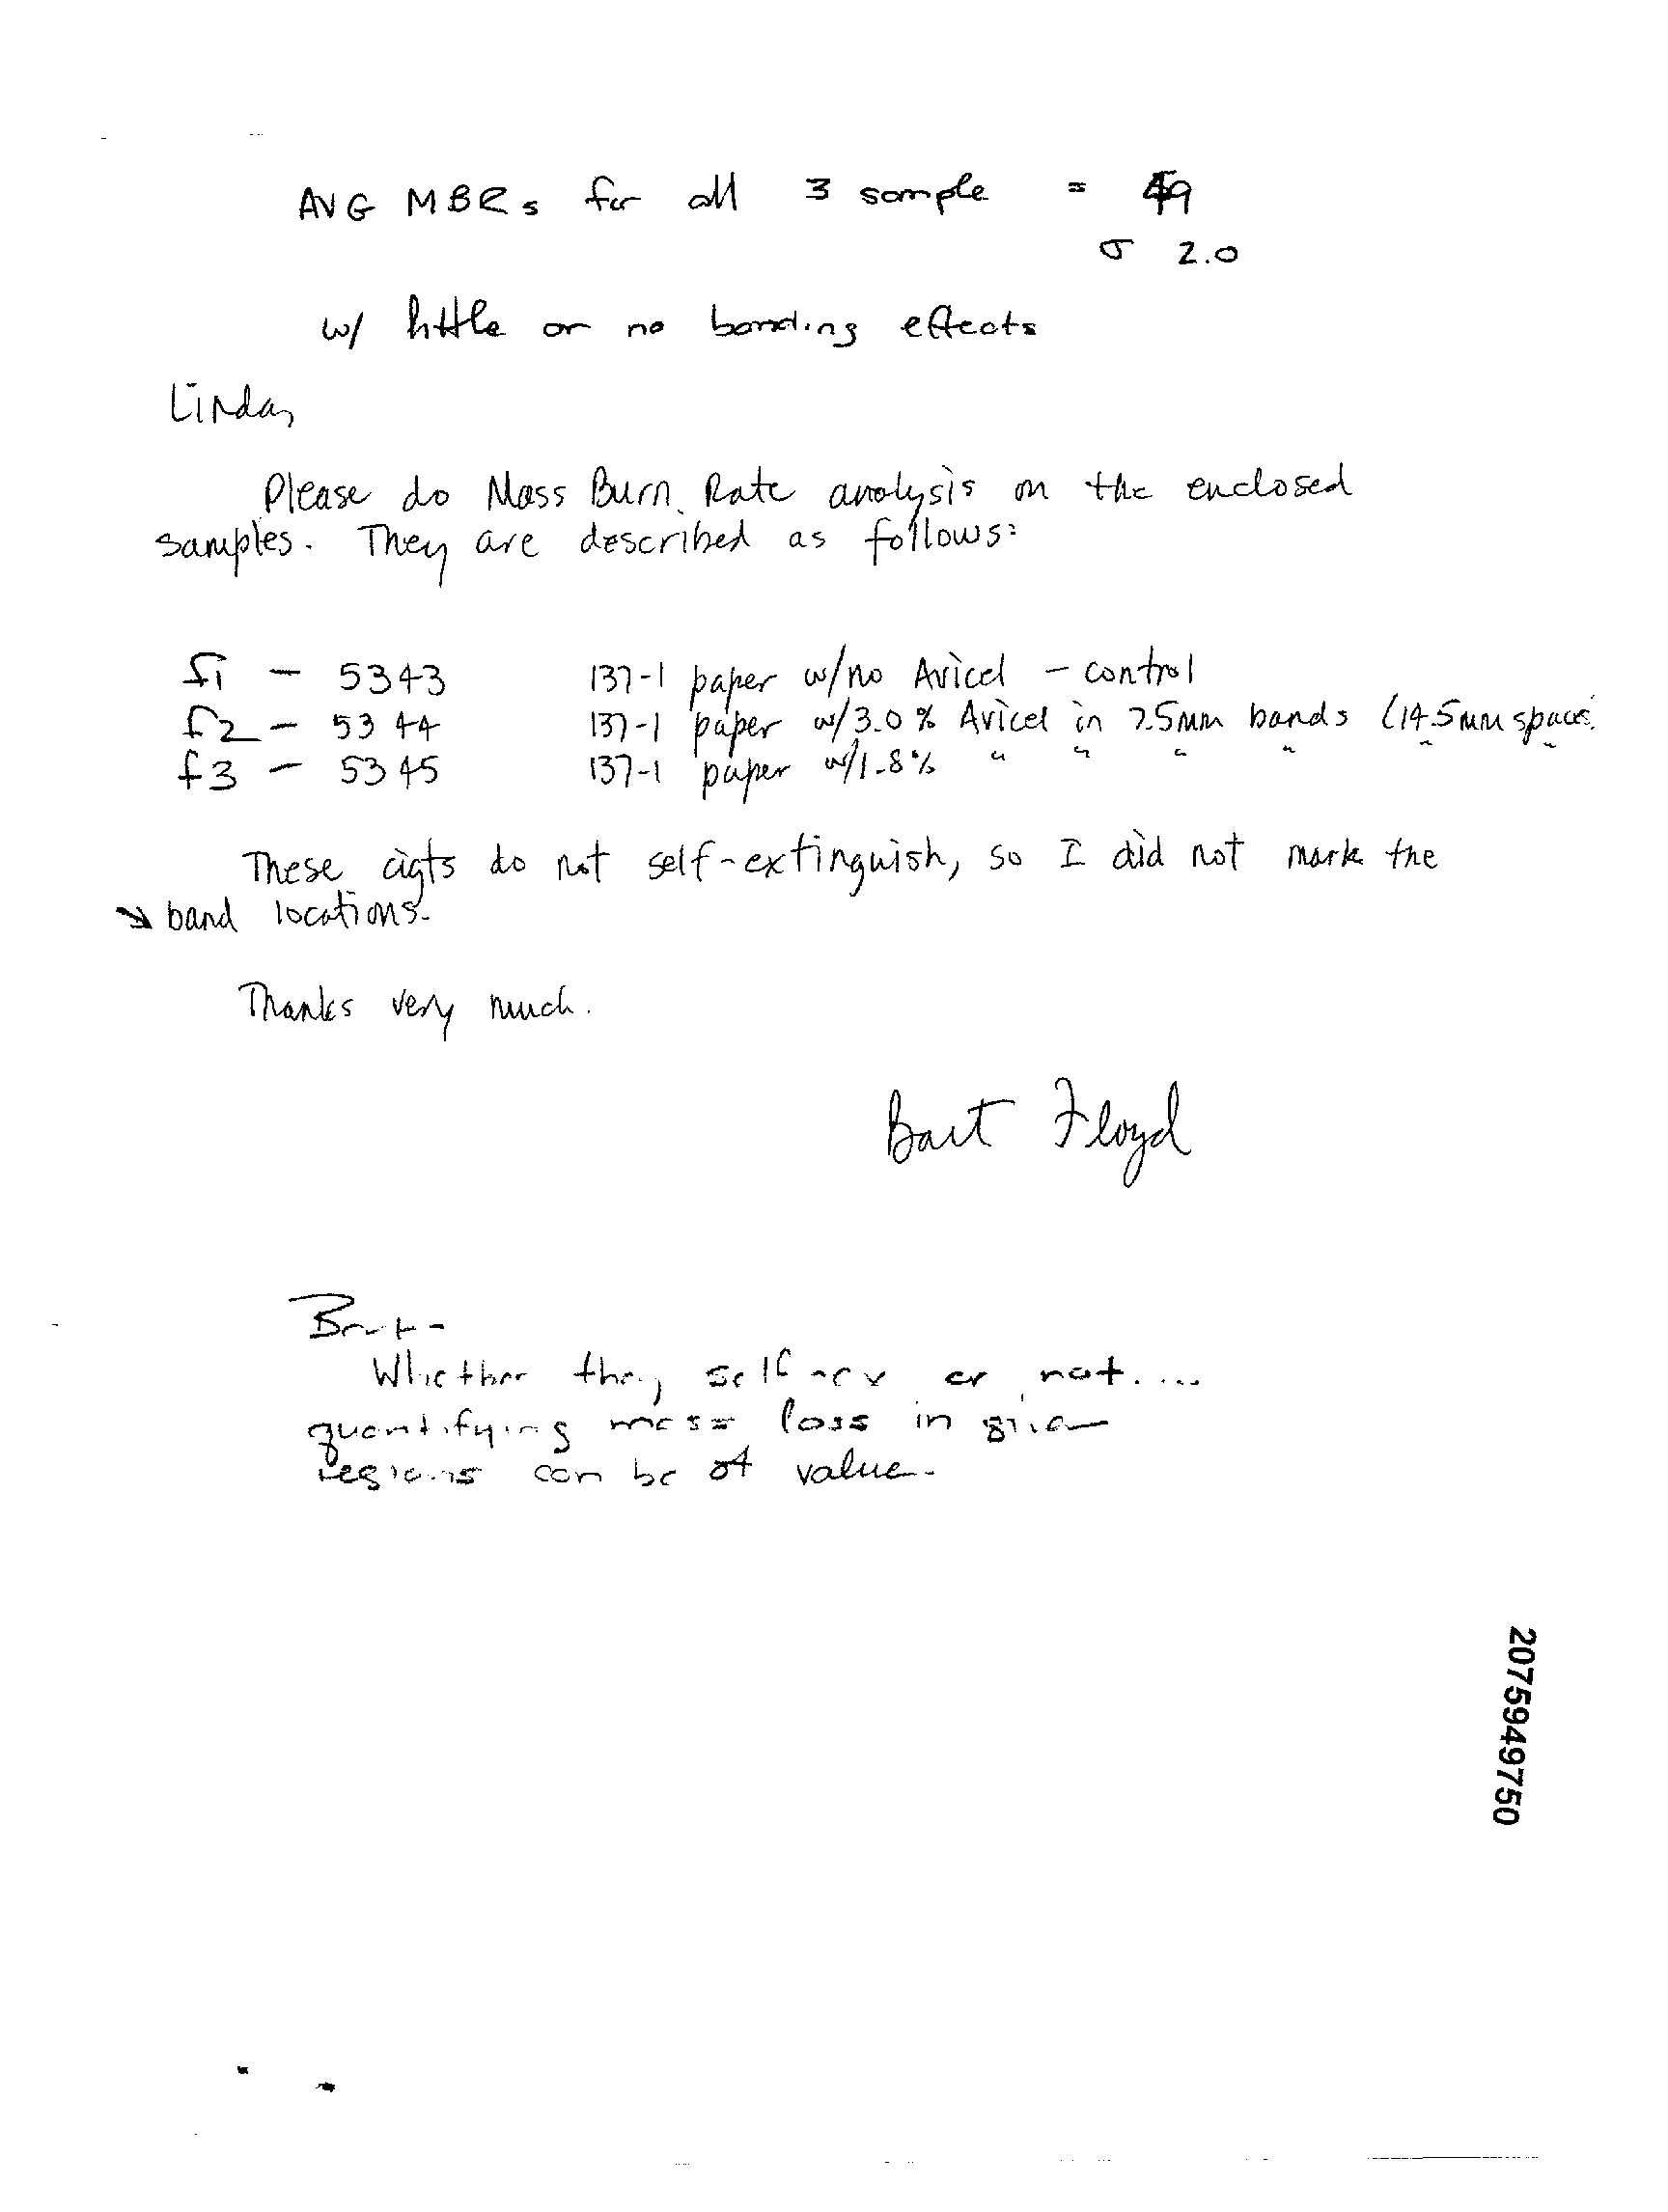 AVG MBRs for all 3 sample =
σ 2.0
w/ little or no banding effects
Linda,
Please do Mass Burn Rate analysis on the enclosed
samples. They are described as follows:
f1 - 5343 137-1 paper w/no Avicel - control
f2 - 5344 137-1 paper w/3.0% Avicel in 7.5mm bands (14.5mm space
f3 - 5345 137-1 paper w/1.8% " " " " " "
These cigts do not self-extinguish, so I did not mark the
band locations.
Thanks very much.
Bart Floyd
Bart-
Whether they self-ex or not....
quantifying mass loss in
regions can be of value.
2075949750